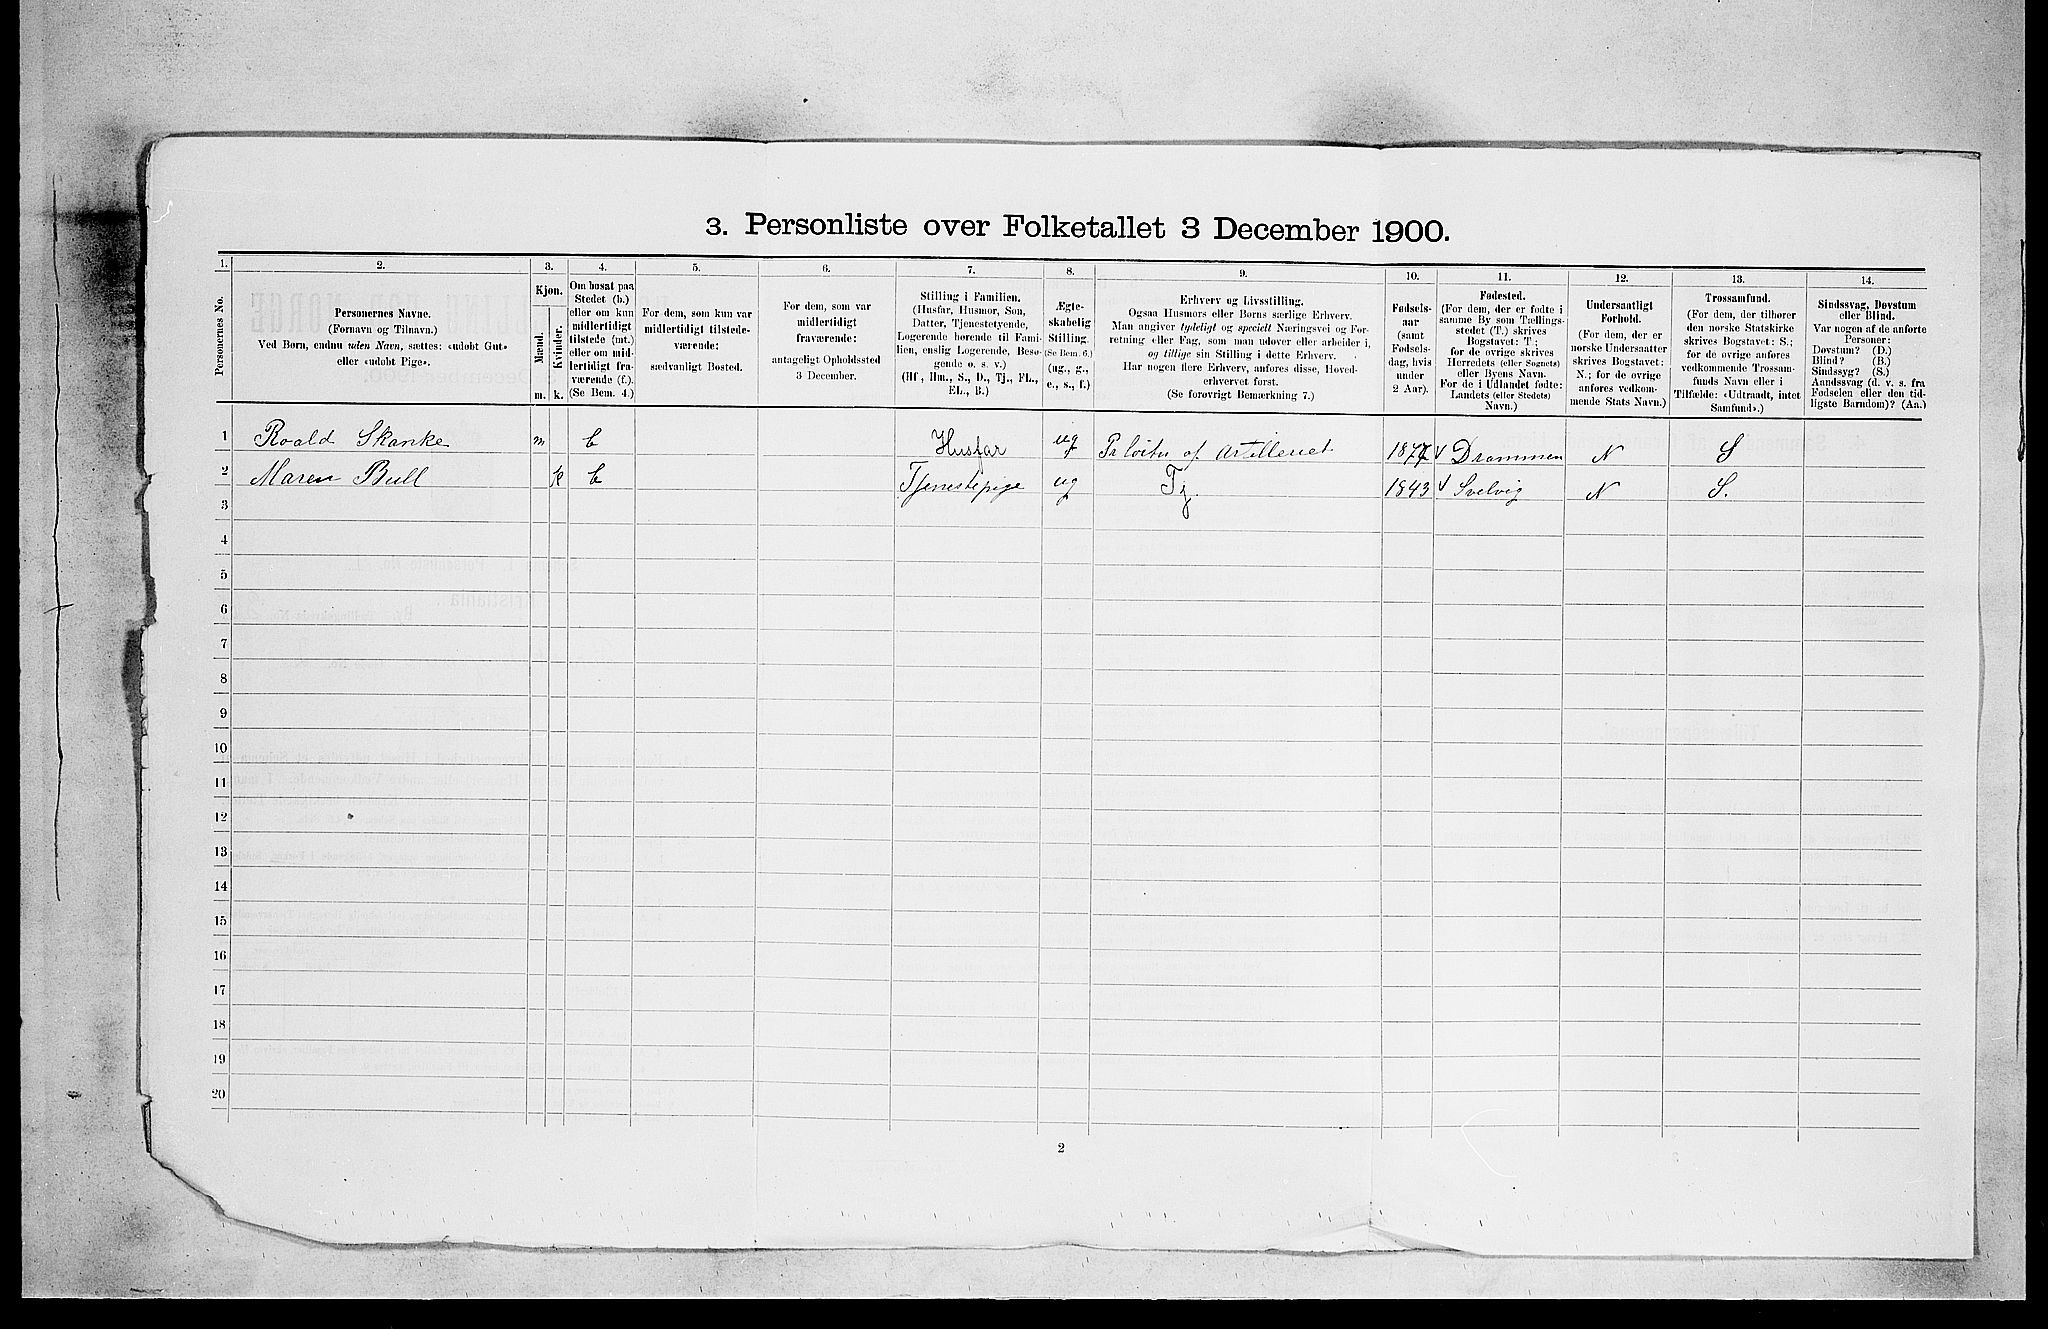 3. Personliste over Folketallet 3 December 1900.
1. 2. 3. 4. 5. 6. 7. 8. 9. 10. 11. 12. 13. 14.
Personernes No.
Personernes Navne.
(Fornavn og Tilnavn.)
Ved Børn, endnu uden Navn, sættes: «udøbt Gut»
eller «udøbt Pige».
Kjøn.
Mænd.
Kvinder.
m. k.
Om bosat paa
Stedet (b.)
eller om kun
midlertidigt
tilstede (mt.)
eller om mid-
lertidigt fra-
værende (f.).
(Se Bem. 4.)
For dem, som kun var
midlertidigt tilstede-
værende:
sædvanligt Bosted.
For dem, som var
midlertidigt
fraværende:
antageligt Opholdssted
3 December.
Stilling i Familien.
(Husfar, Husmor, Søn,
Datter, Tjenestetyende,
Logerende hørende til Fami-
lien, enslig Logerende, Besø-
gende o. s. v.)
(Hf, Hm., S., D., Tj., FL.,
EL., B.)
Ægte-
skabelig
Stilling.
(Se Bem. 6.)
(ug., g.,
e., s., f.)
Erhverv og Livsstilling.
Ogsaa Husmors eller Børns særlige Erhverv.
Man angiver tydeligt og specielt Næringsvei og For-
retning eller Fag, som man udøver eller arbeider i,
og tillige sin Stilling i dette Erhverv.
Har nogen flere Erhverv, anføres disse, Hoved-
erhvervet først.
(Se forøvrigt Bemærkning 7.)
Fødsels-
aar
(samt
Fødsels-
dag, hvis
under
2 Aar).
Fødested.
(For dem, der er fødte i
samme By som Tællings-
stedet (T.) skrives
Bogstavet: T;
for de øvrige skrives
Herredets (eller Sognets)
eller Byens Navn.
For de i Udlandet fødte:
Landets (eller Stedets)
Navn.)
Undersaatligt
Forhold.
(For dem, der er
norske Undersaatter
skrives Bogstavet:
N.; for de øvrige
anføres vedkom-
mende Stats Navn.)
Trossamfund.
(For dem, der tilhører
den norske Statskirke
skrives Bogstavet: S.;
for de øvrige anføres
vedkommende Trossam-
funds Navn eller i
Tilfælde: «Udtraadt, intet
Samfund».)
Sindssvag, Døvstum
eller Blind.
Var nogen af de anførte
Personer:
Døvstum? (D.)
Blind? (B.)
Sindssyg? (S.)
Aandssvag (d. v. s. fra
Fødselen eller den tid-
ligste Barndom)? (Aa.)
1 Roald Skanke m b Husfar ug Pr løitn af Artilleriet 1877 Drammen N S
2 Maren Bull k b Tjenestepige ug Tj. 1843 Svelvig N S.
3
4
5
6
7
8
9
10
11
12
13
14
15
16
17
18
19
20
2